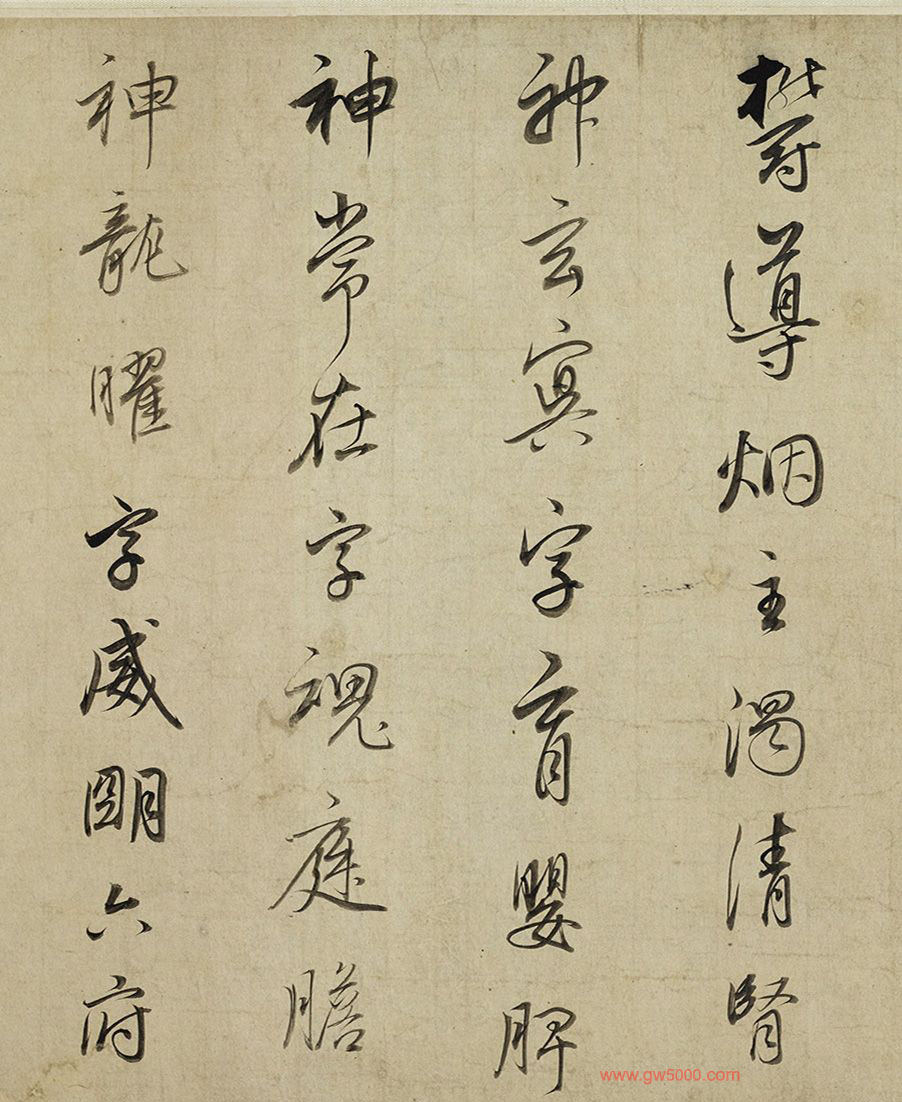 欝導烟主濁清腎
神玄冥字育嬰脾
神常在字魂庭膽
神龍曜字威朙六府
www.gw5000.com